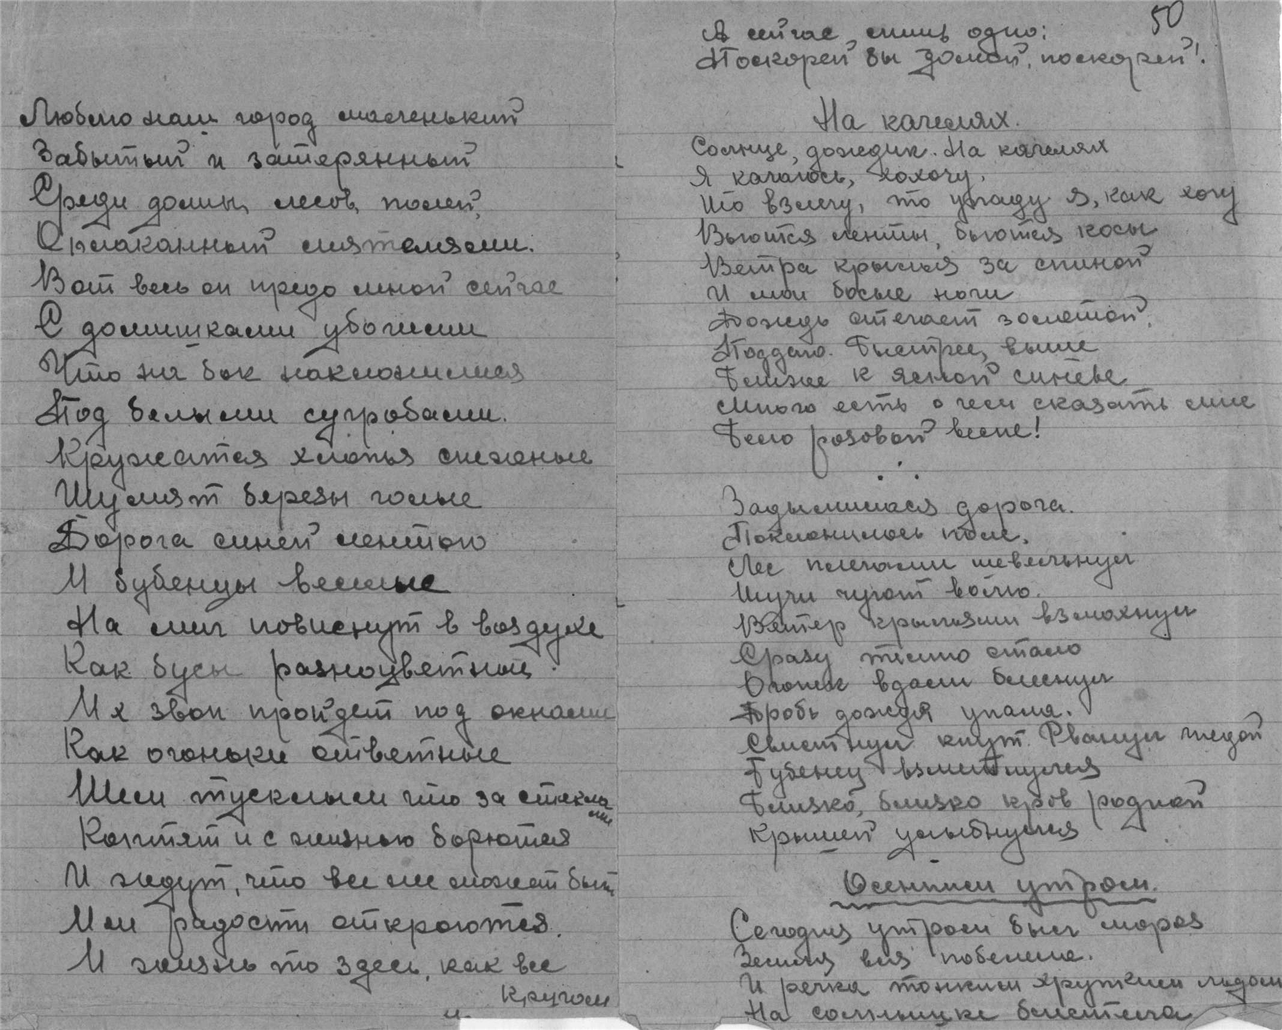 Люблю наш город маленький
Забытый и затерянный
Среди долин, лесов, полей,
Оплаканный мятелями.
Вот весь он предо мной сейчас
С домишками убогими
Что на бок наклонилися
Под белыми сугробами.
Кружатся хлопья снежные
Шумят березы голые
Дорога синей лентою
И бубенцы веселые
На миг повиснут в воздухе
Как бусы разноцветные
Их звон пройдет под окнами
Как огоньки ответные
Шем тусклым что за стеклами
Коптят и с жизнью борются
И ждут, что все же может быть
Им радости откроются.
И жизнь то здесь, как все
кругом
50
А сейчас лишь одно:
Поскорей бы домой, поскорей!
На качелях.
Солнце, дождик. На качелях
Я качаюсь, хохочу,
То взлечу, то упаду я, как хочу
Вьются ленты, бьются косы
Ветра крылья за спиной
И мои босые ноги
Дождь стегает золотой.
Поддаю. Быстрее, выше
Ближе к ясной синеве
Много есть о чем сказать мне
Белорозовой весне!
Задымилася дорога.
Поклонилось поле,
Лес плечами шевельнул
Тучи чуют волю.
Ветер крыльями взмахнул
Сразу тихо стало
Огонек вдали блеснул
Дробь дождя упала.
Свистнул кнут. Рванул гнедой
Бубенец взметнулся
Близко, близко кров родной
Крышей улыбнулся
Осенним утром.
Сегодня утром был мороз
Земля вся побелела.
И речка тонким хрупким льдом
На солнышке блестела